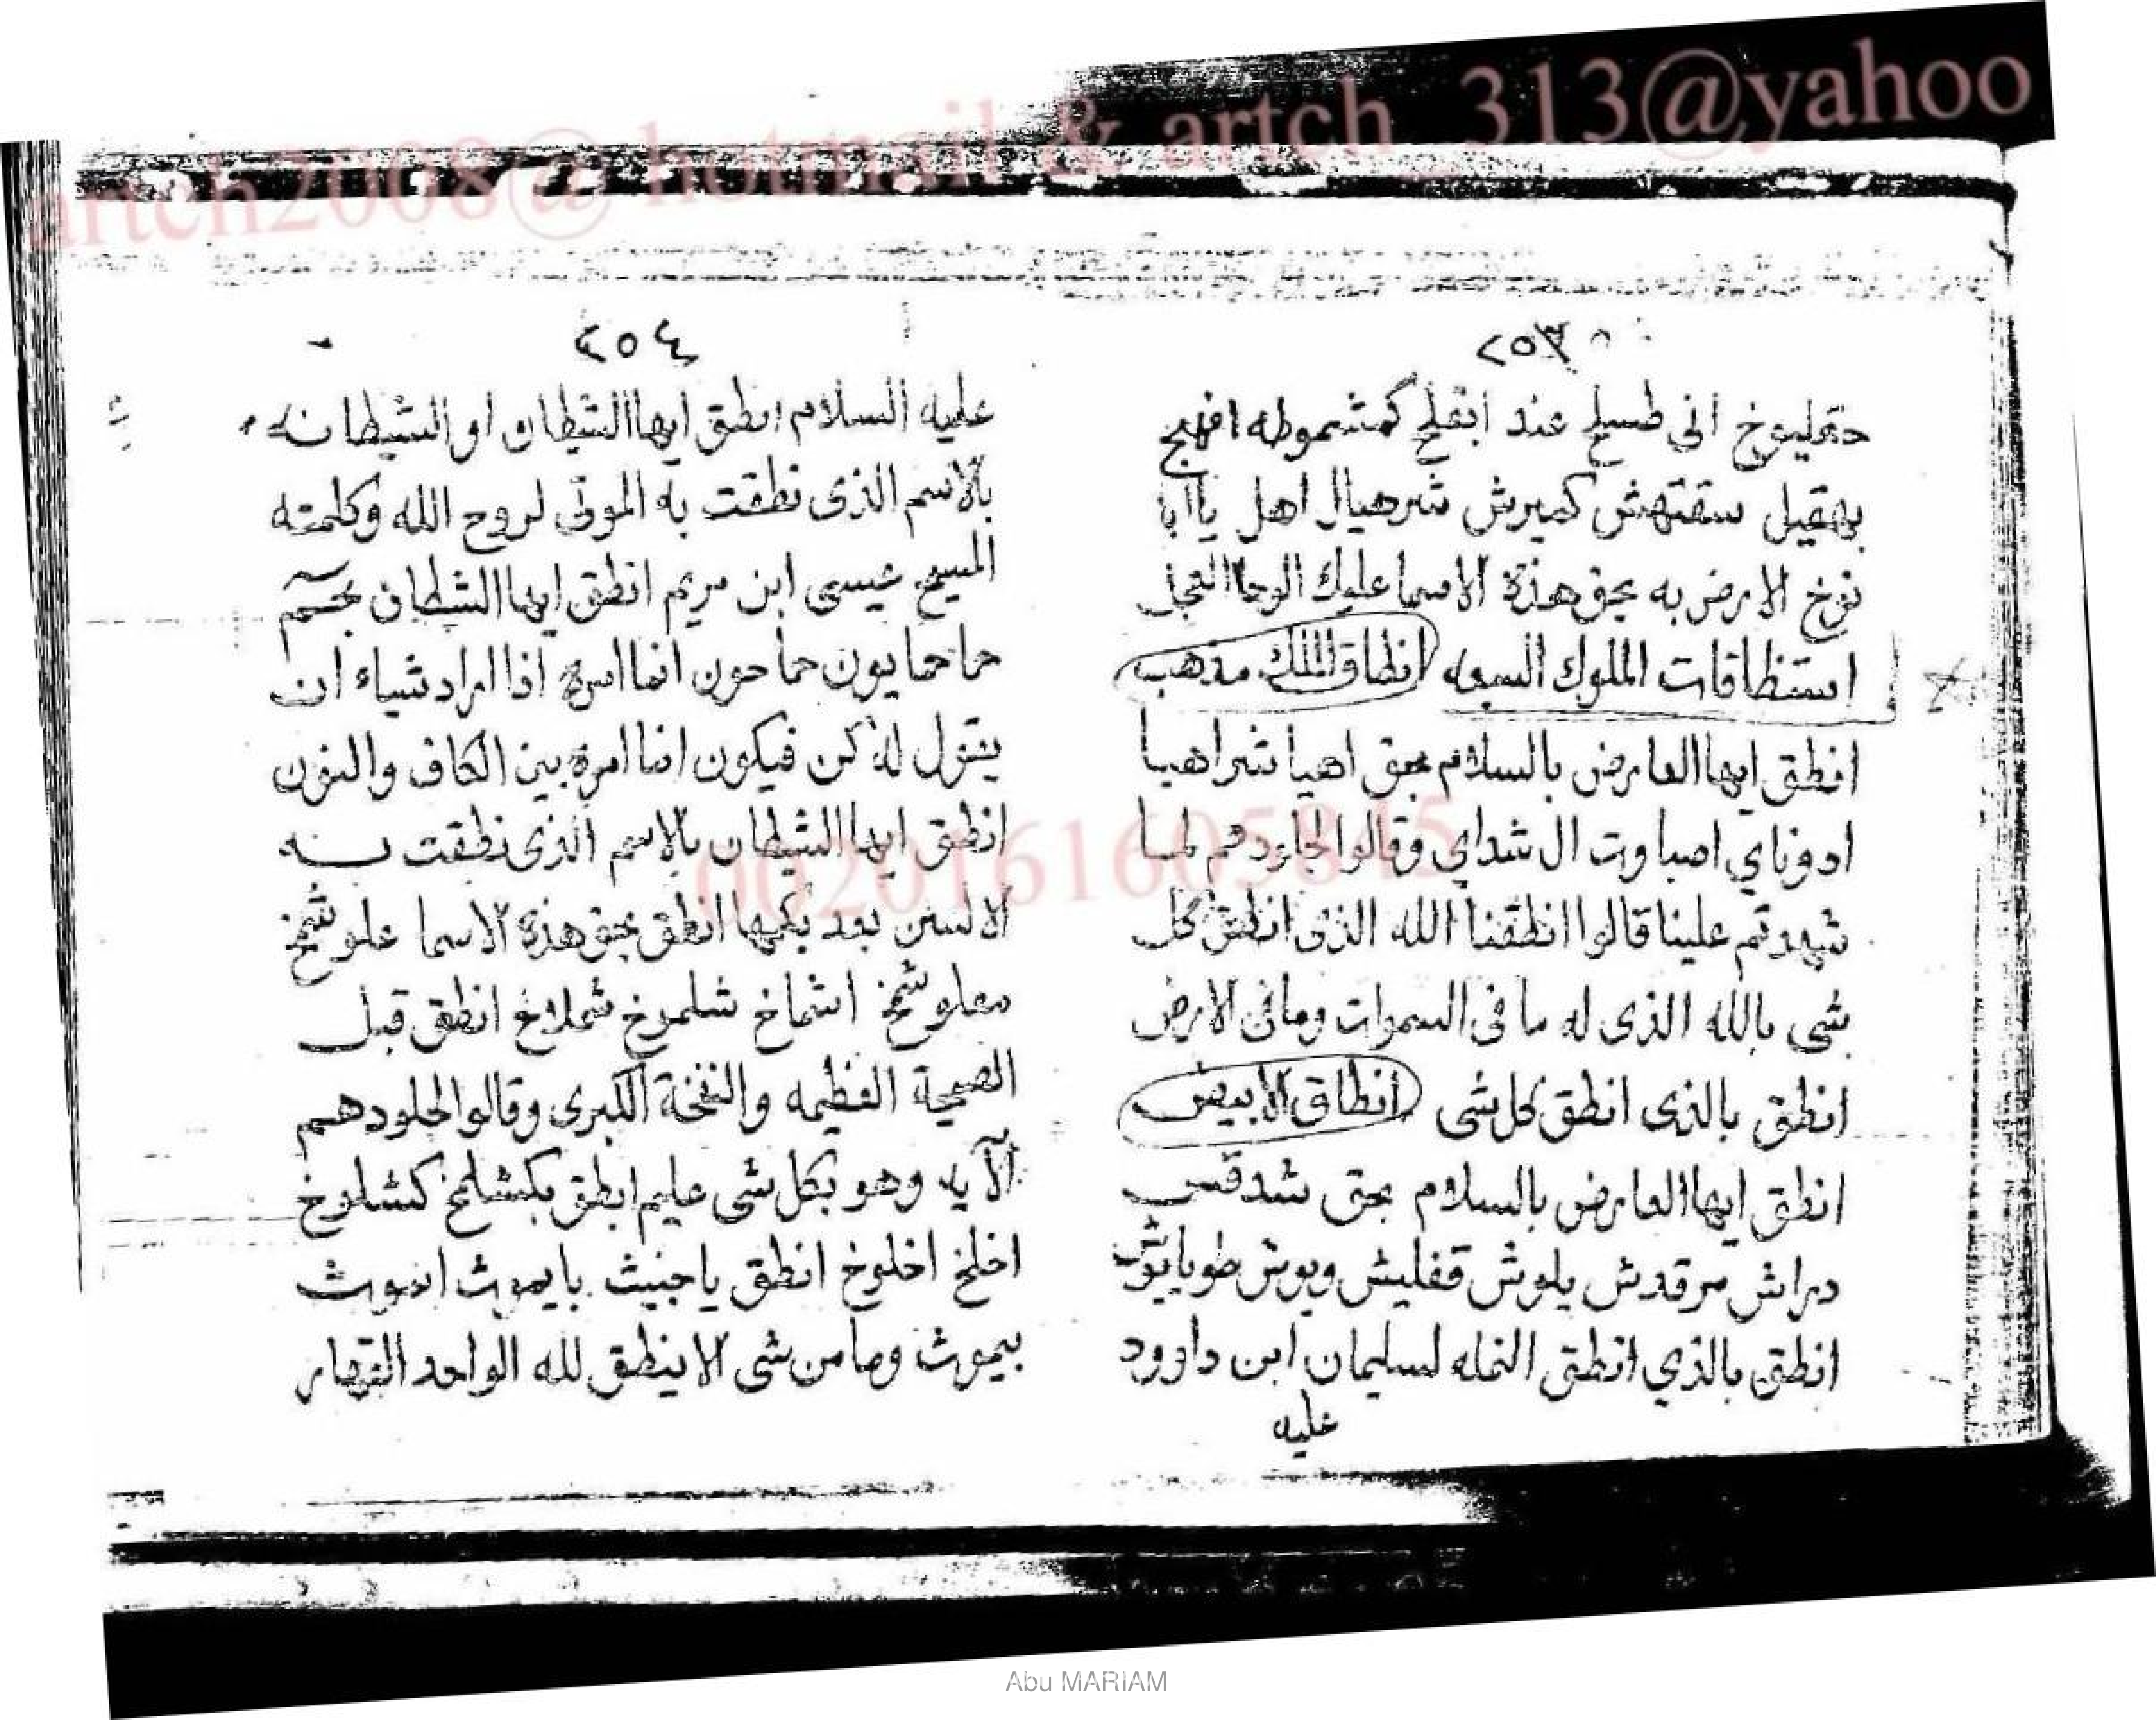 artch2008@ hotmail & artch_313@yahoo
٢٥٣
حقليوخ انى طسيلخ عند ابقلخ كمشموطه افهيج
بهقيل سقتهش كميرش شرهيال اهل ياابا
نوخ الارض به بحق هذة الاسما عليك الوحا العجل
استنظاقات الملوك السبعه انطاق الملك مذهب
انطق ايها العارض بالسلام بحق اهيا شراهيا
ادوناي اصباوت ال شداي وقالوا لجلودهم لما
شهدتم علينا قالوا انطقنا الله الذى انطق كل
شى بالله الذى له ما فى السموات ومافى الارض
انطق بالذى انطق كل شى انطاق الابيض
انطق ايها العارض بالسلام بحق شدقس
دراش مرقدش يلوش قفليش ويوش طوبايوش
انطق بالذي انطق النمله لسليمان ابن داوود
عليه
٢٥٤
عليه السلام انطق ايها الشيطان او الشيطانه
بالاسم الذى نطقت به الموتى لروح الله وكلمته
المسيح عيسى ابن مريم انطق ايها الشطان
حما حما يون حما حون انما امره اذا اراد شياء ان
يقول له كن فيكون انما امره بين الكاف والنون
انطق ايها الشيطان بالاسم الذى نطقت بـه
الالسن بعد بكمها انطق بحق هذة الاسما علوشمخ
معلوشمخ اشماخ شلموخ شملاخ انطق قبل
الصيحة العظيمه والنفخة الكبرى وقالوا لجلودهم
الآيه وهو بكل شى عليم انطق بكشلمخ كشلوخ
اخلخ اخلوخ انطق ياجنيث بايموث اموث
بيموث وما من شى الا ينطق لله الواحد القهار
00201616058‎45
Abu MARIAM